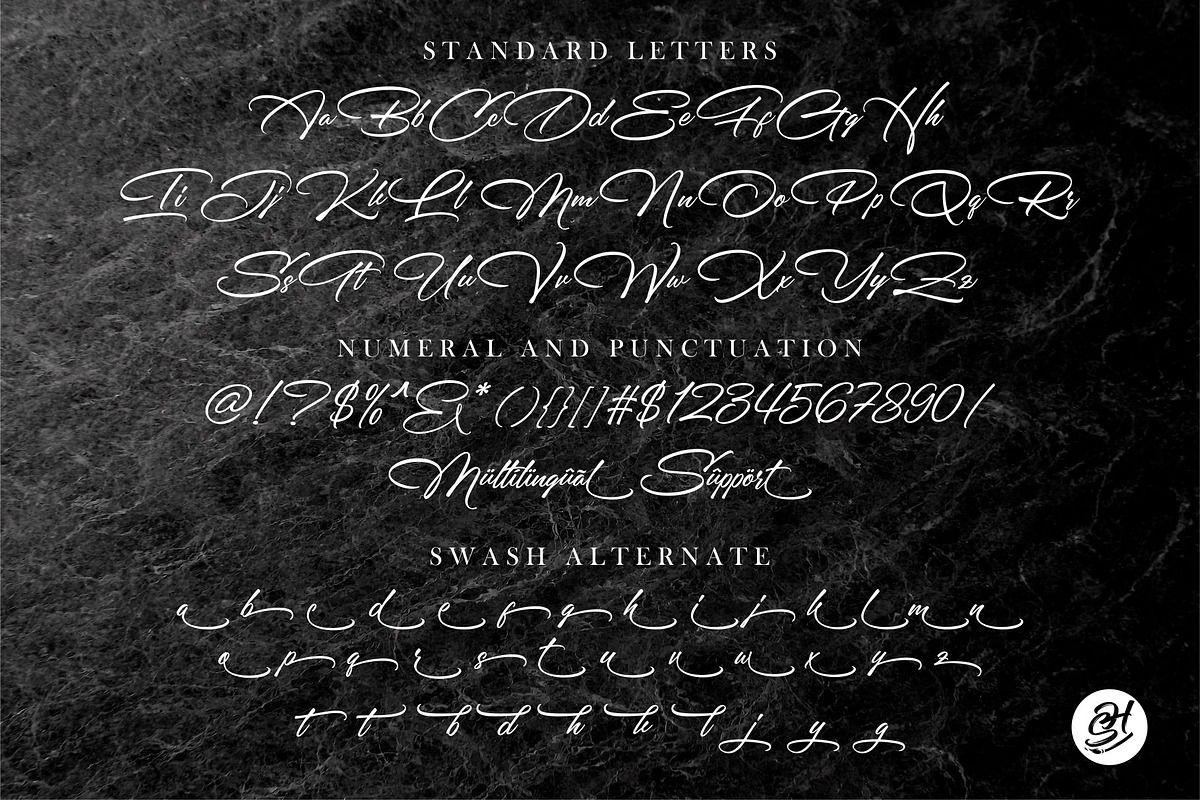 STANDARD LETTERS
Aa Bb Cc Dd Ee Ff Gg Hh
Ii Jj Kk Ll Mm Nn Oo Pp Qq Rr
Ss Tt Uu Vv Ww Xx Yy Zz
NUMERAL AND PUNCTUATION
@!?$%^&*(){}[]#$1234567890/
Mültilingûãl Sûppört
SWASH ALTERNATE
a b c d e f g h i j k l m n
o p q r s t u v w x y z
t t b d h k l j y g
SH